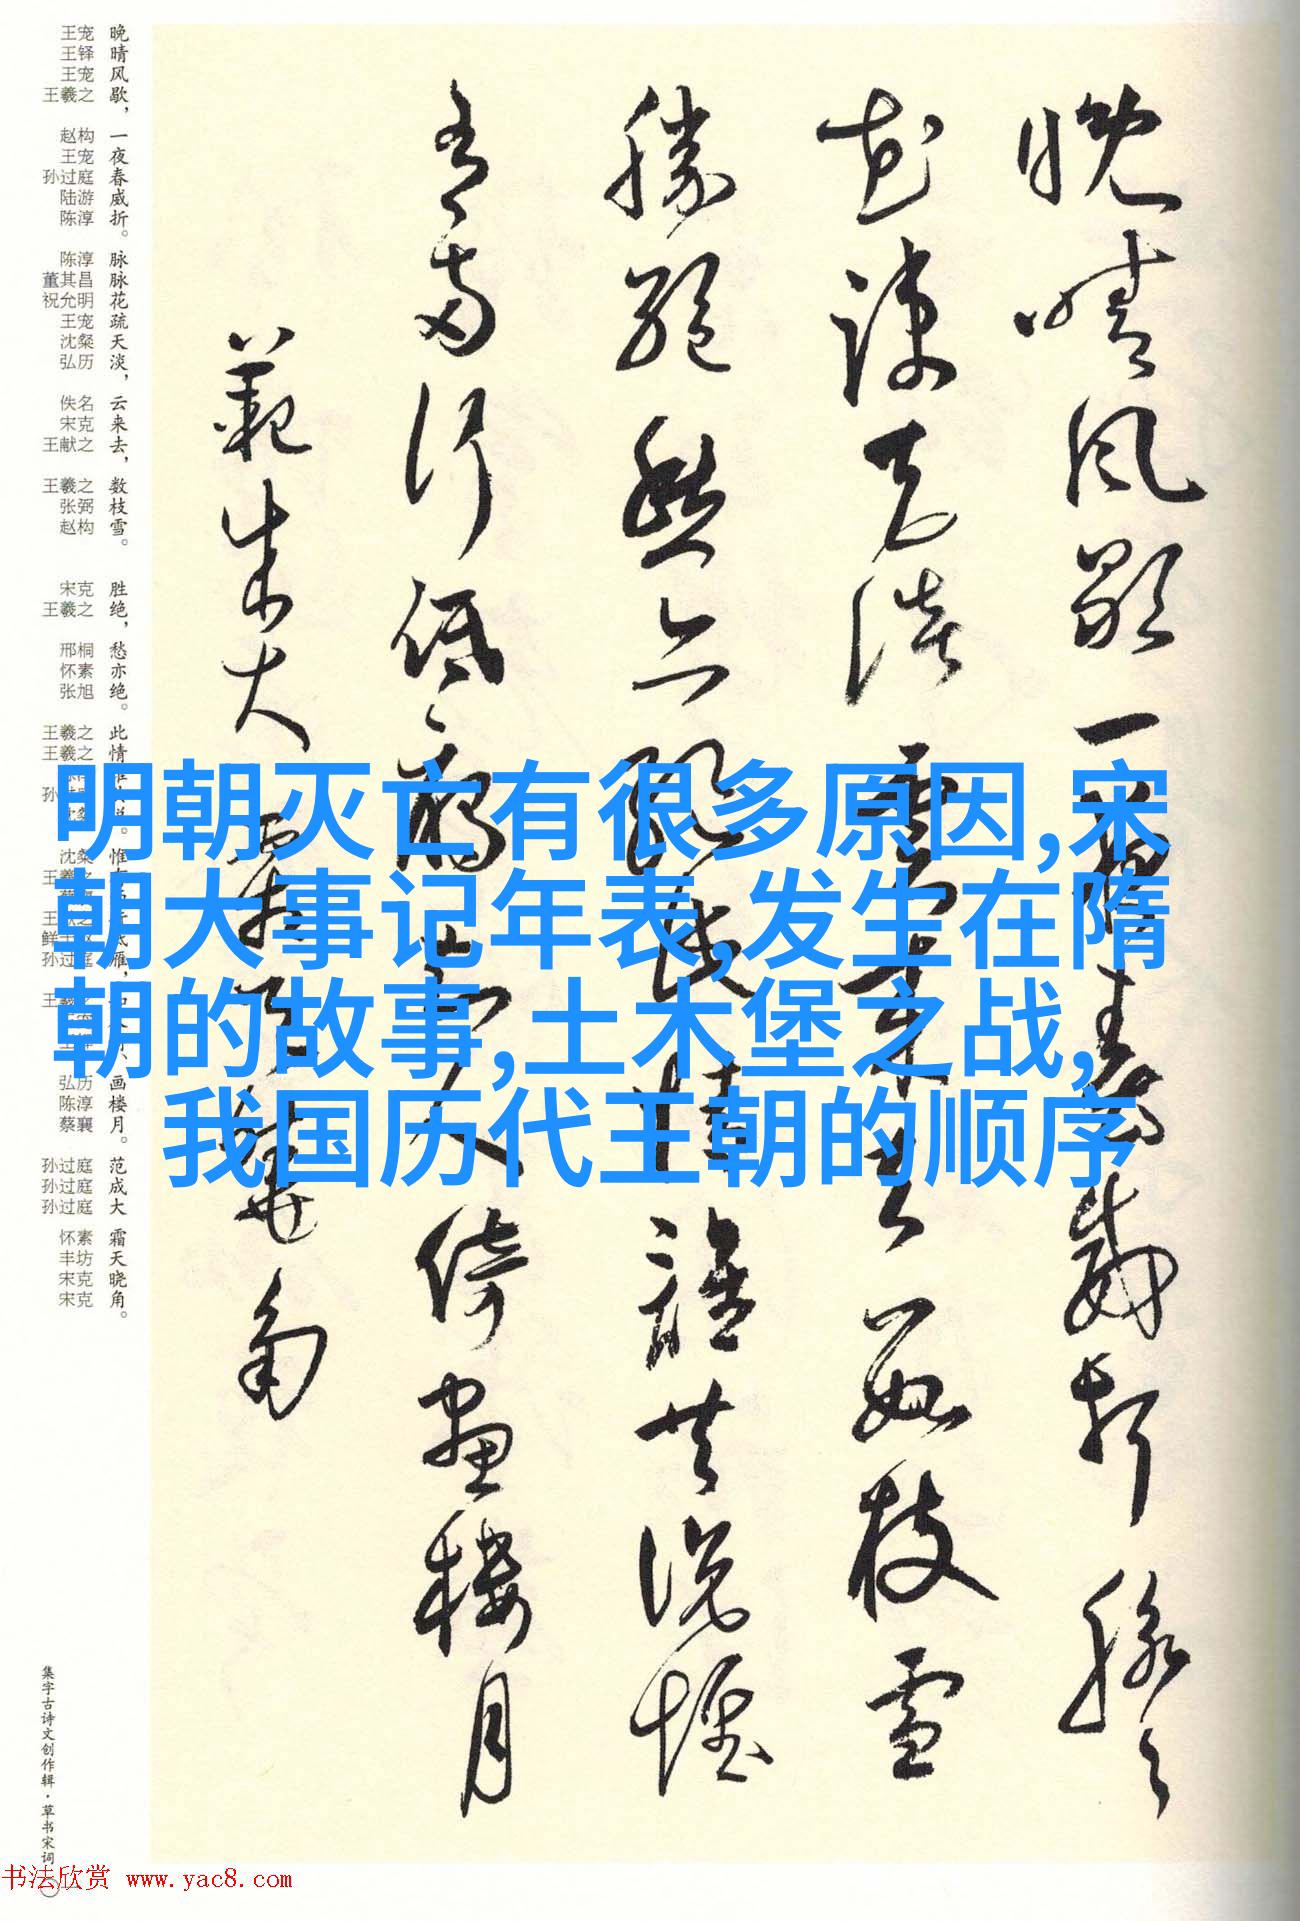 晚晴風歇一夜春威折脉〻
花疎天淡雲來去數枝雪
勝絕愁亦絕此情誰共説惟
有兩行低雁知人倚畫樓月
範成大霜天曉角
明朝灭亡有很多原因,宋
朝大事记年表,发生在隋
朝的故事,土木堡之战,
我国历代王朝的顺序
王宠 晚
王铎 晴
王宠 风
王羲之 歇，
赵构 一
王宠 夜
孙过庭 春
陆游 威
陈淳 折。
陈淳 脉
董其昌 脉
祝允明 花
王宠 疏
沈粲 天
弘历 淡，
佚名 云
宋克 来
王献之 去，
王羲之 数
张弼 枝
赵构 雪。
宋克 胜
王羲之 绝，
邢桐 愁
怀素 亦
张旭 绝。
王羲之 此
王羲之 情
沈粲 惟
弘历 画
陈淳 楼
蔡襄 月。
孙过庭 范
孙过庭 成
孙过庭 大
怀素 霜
丰坊 天
宋克 晓
宋克 角。
集字古诗文创作辑·草书宋词
书法欣赏 www.yac8.com